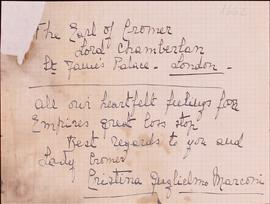 The Earl of Cromer
Lord Chamberlan
St James's Palace - London -
all our heartfelt feelings for
Empires great loss stop
Best regards to you and
Lady Cromer
Cristina Guglielmo Marconi